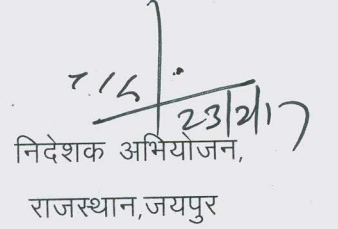 23/2/17
निदेशक अभियोजन,
राजस्थान,जयपुर